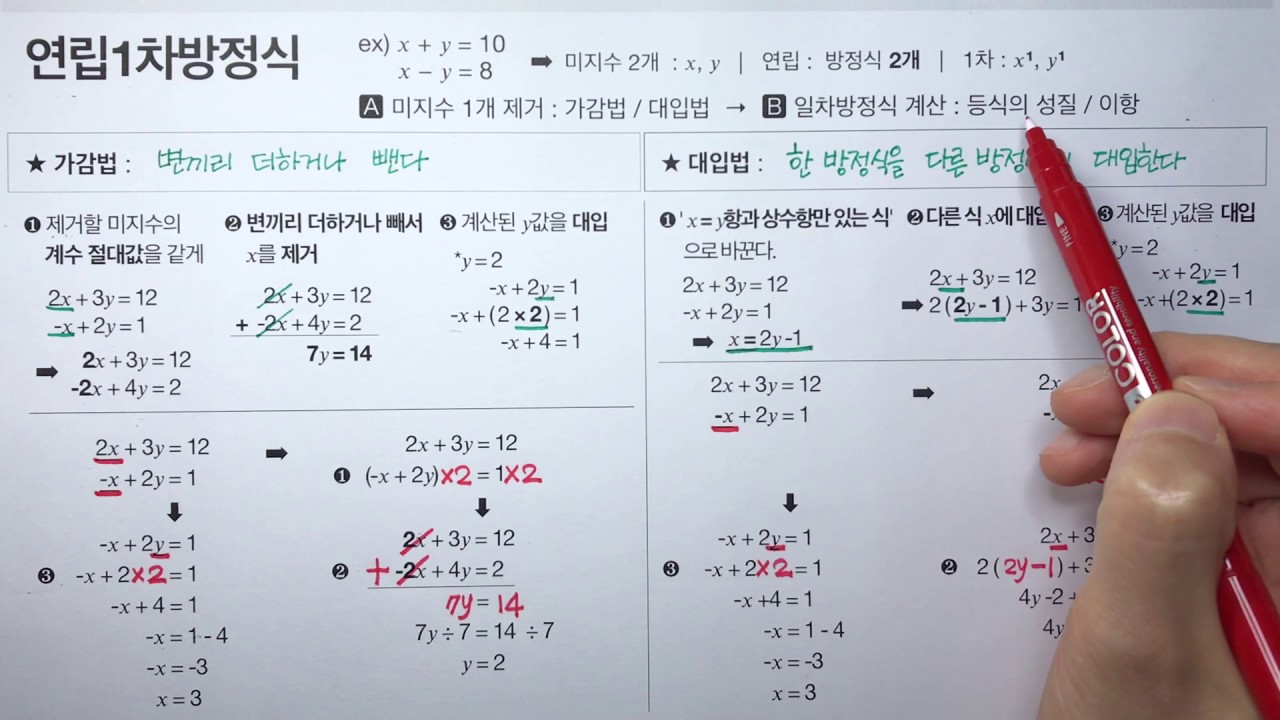 연립1차방정식
ex) x + y = 10
x − y = 8
➡ 미지수 2개 : x, y | 연립 : 방정식 2개 | 1차 : x¹, y¹
A 미지수 1개 제거 : 가감법 / 대입법 → B 일차방정식 계산 : 등식의 성질 / 이항
★ 가감법 : 변끼리 더하거나 뺀다
❶ 제거할 미지수의
계수 절대값을 같게
2x + 3y = 12
-x + 2y = 1
➡ 2x + 3y = 12
-2x + 4y = 2
❷ 변끼리 더하거나 빼서
x를 제거
2x + 3y = 12
+ -2x + 4y = 2
7y = 14
❸ 계산된 y값을 대입
*y = 2
-x + 2y = 1
-x + (2 × 2) = 1
-x + 4 = 1
2x + 3y = 12
-x + 2y = 1
➡
2x + 3y = 12
❶ (-x + 2y)×2 = 1×2
⬇
2x + 3y = 12
❷ + -2x + 4y = 2
7y = 14
7y ÷ 7 = 14 ÷ 7
y = 2
⬇
-x + 2y = 1
❸ -x + 2×2 = 1
-x + 4 = 1
-x = 1 - 4
-x = -3
x = 3
★ 대입법 : 한 방정식을 다른 대입한다
❶ ' x = y항과 상수항만 있는 식'
으로 바꾼다.
2x + 3y = 12
-x + 2y = 1
➡ x = 2y - 1
❷ 다른 식 x에
2x + 3y = 12
➡ 2 (2y - 1) + 3y =
❸ 계산된 y값을 대입
*y = 2
-x + 2y = 1
-x + (2 × 2) = 1
2x + 3y = 12
-x + 2y = 1
➡
2x
⬇
2x + 3
❷ 2 ( 2y−1 ) +
4y - 2
4y
-x + 2y = 1
❸ -x + 2×2 = 1
-x +4 = 1
-x = 1 - 4
-x = -3
x = 3
FINE
COLOR